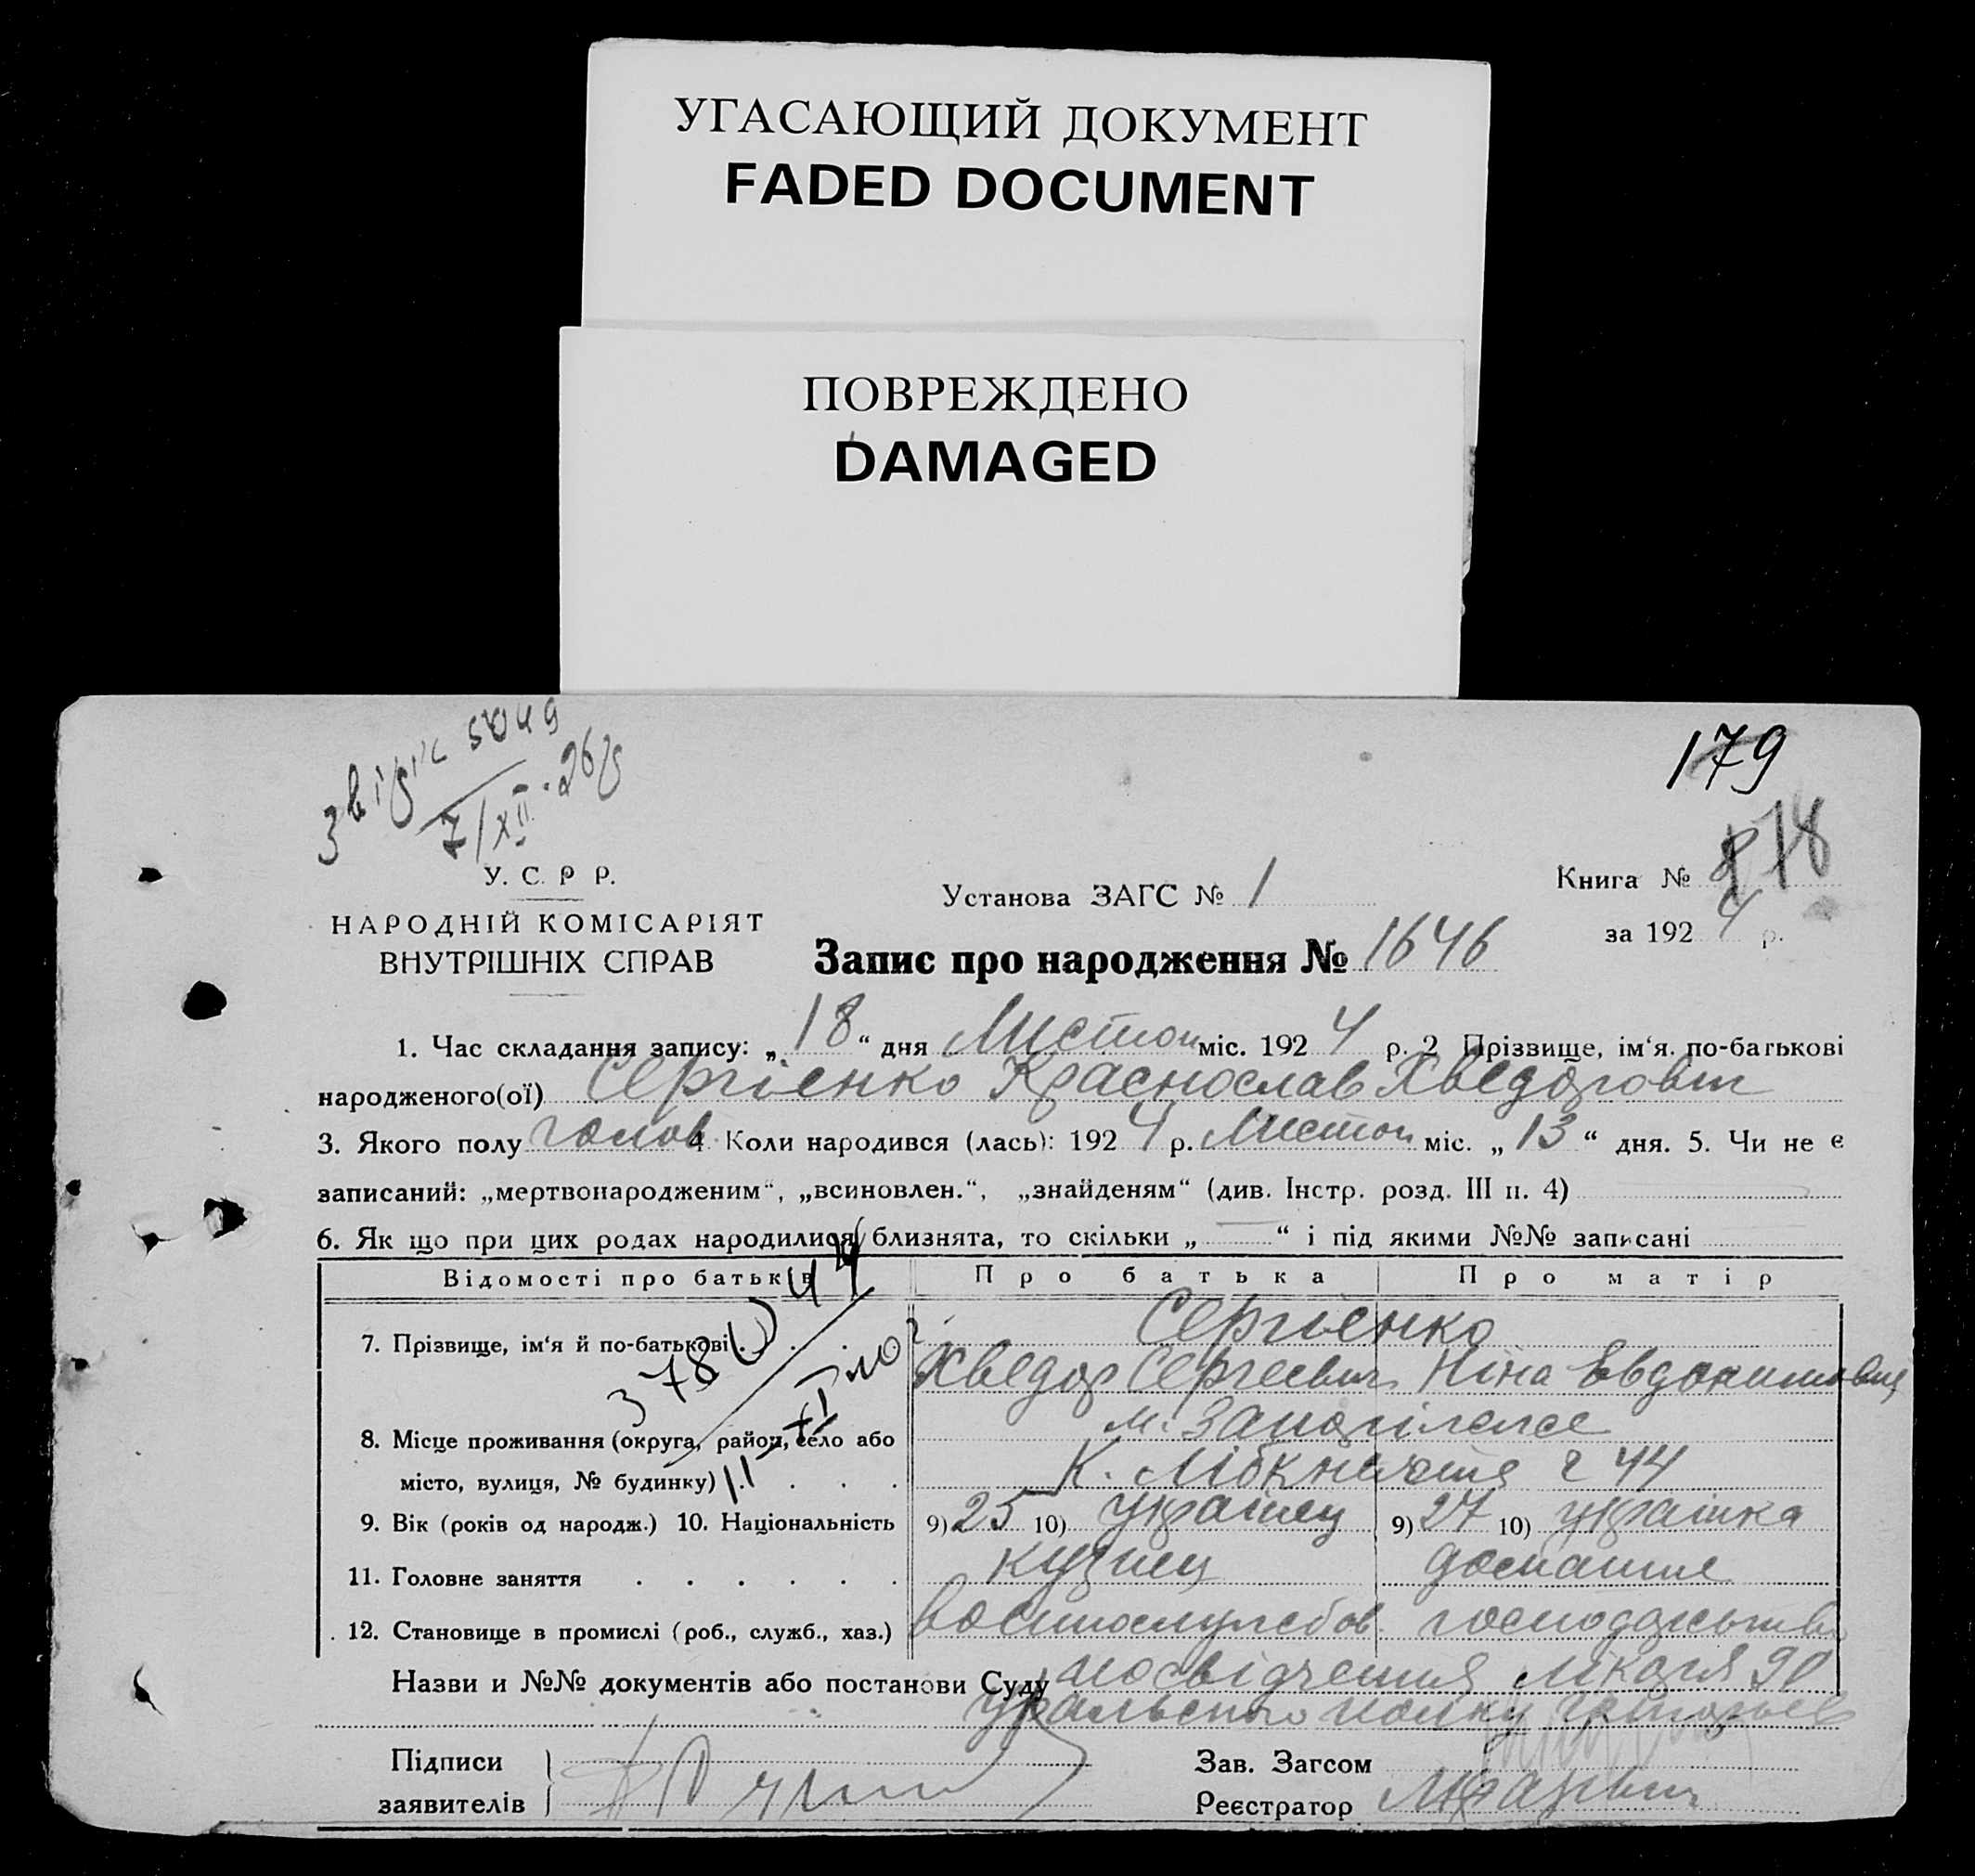 УГАСАЮЩИЙ ДОКУМЕНТ
FADED DOCUMENT
ПОВРЕЖДЕНО
DAMAGED
179
5049
7/XII.26
878
У. С. Р Р.
НАРОДНІЙ КОМІСАРІЯТ
ВНУТРІШНІХ СПРАВ
Установа ЗАГС № 1
Книга №
за 1924 р.
Запис про народження № 1646
1. Час складання запису: „18“ дня Листоп міс. 1924 р. 2 Прізвище, ім‘я. по-батькові
народженого(ої) Сергієнко Краснослав Хведорович
3. Якого полу чолов 4 Коли народився (лась): 1924 р. Листоп міс. „13“ дня. 5. Чи не є
записаний: „мертвонародженим“, „всиновлен.“, „знайденям“ (див. Інстр. розд. III п. 4)
6. Як що при цих родах народилися близнята, то скільки „—“ і під якими №№ записані
Відомості про батьків
Про батька
Про матір
7. Прізвище, ім‘я й по-батькові
Сергієнко
Хведор Сергеевич Ніна
8. Місце проживання (округа, район, село або
м. Запоріжже
місто, вулиця, № будинку)
К. Лібкнехта 44
9. Вік (років од народж.) 10. Національність 9) 25 10) українец 9) 27 10) українка
11. Головне заняття кузнец домашнє
12. Становище в промислі (роб., служб., хаз.) военнослужбов. господарство
Назви и №№ документів або постанови Суду посвідчення лікаря 90
уральського полку
Підписи
заявителів
Зав. Загсом
Реєстратор